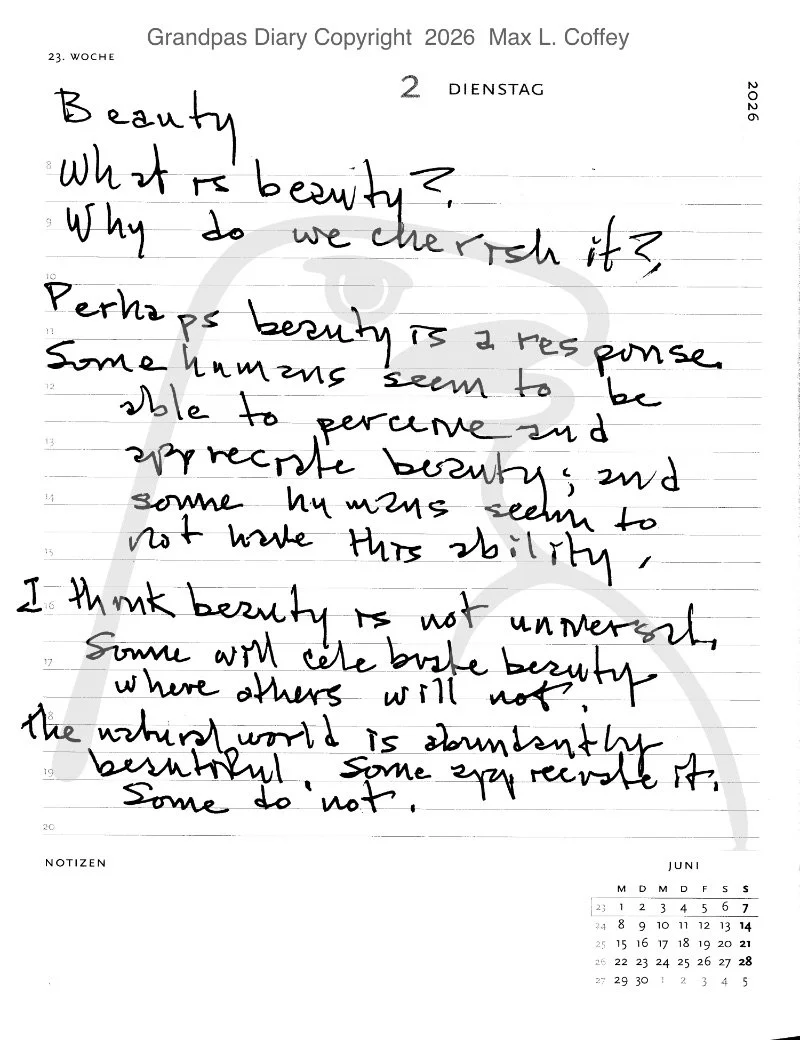 Grandpas Diary Copyright 2026 Max L. Coffey
23. WOCHE
2 DIENSTAG
2026
Beauty
8
What is beauty?
9
Why do we cherish it?
10
Perhaps beauty is a response.
11
Some humans seem to be
12
able to perceive and
13
appreciate beauty; and
14
some humans seem to
15
not have this ability.
16
I think beauty is not universal.
17
Some will celebrate beauty
where others will not.
18
the natural world is abundantly
19
beautiful. Some appreciate it.
Some do not.
20
NOTIZEN
JUNI
M D M D F S S
23 1 2 3 4 5 6 7
24 8 9 10 11 12 13 14
25 15 16 17 18 19 20 21
26 22 23 24 25 26 27 28
27 29 30 1 2 3 4 5